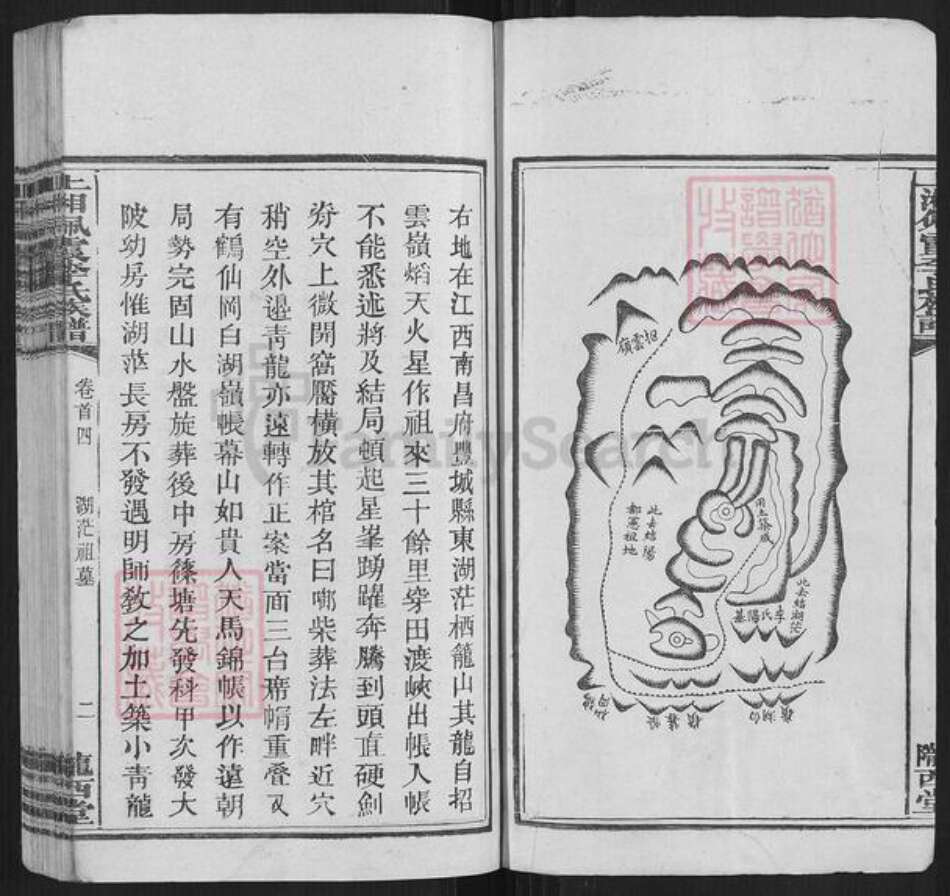 招雲嶺
此去結陽
都憲祖地
用土築成
此去結湖茫
李氏陽基
仙岡
帳幕
白湖嶺
隴西堂
右地在江西南昌府豐城縣東湖茫栖籠山其龍自招
雲嶺熖天火星作祖來三十餘里穿田渡峽出帳入帳
不能悉述將及結局頓起星峯踴躍奔騰到頭直硬劍
脊穴上微開窩靨橫放其棺名曰啷柴葬法左畔近穴
稍空外邊靑龍亦遠轉作正案當面三台席帽重叠又
有鶴仙岡白湖嶺帳幕山如貴人天馬錦帳以作遠朝
局勢完固山水盤旋葬後中房篠塘先發科甲次發大
陂功房惟湖茫長房不發遇明師敎之加土築小靑龍
上湘佩霞李氏族譜
卷首四
湖茫祖墓
二
隴西堂
FamilySearch